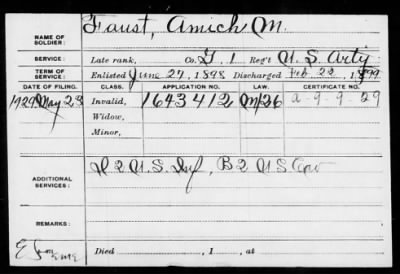 NAME OF SOLDIER: Faust, Amich M.
SERVICE: Late rank, Co. G, 1 Reg't U.S. Arty
TERM OF SERVICE: Enlisted June 27, 1898 Discharged Feb. 22, 1899
DATE OF FILING. CLASS. APPLICATION NO. LAW. CERTIFICATE NO.
1929 May 23 Invalid, 1643412 A-9-9-29
Widow,
Minor,
ADDITIONAL SERVICES: D 2 U.S. Inf, B 2 U S Cav
REMARKS:
Died , 1 , at